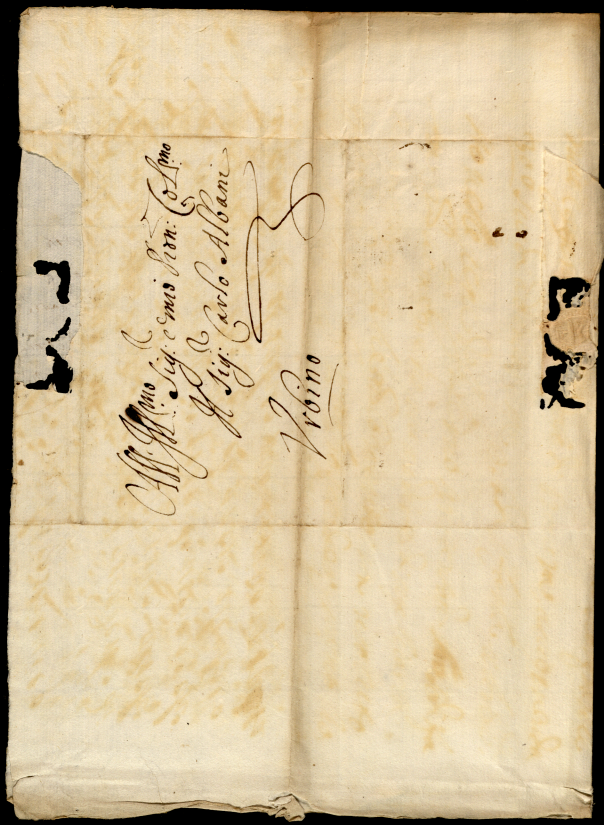 All Ill.mo Sig.r e mio Pron: Col.mo
Il Sig.r Carlo Albani
Urbino